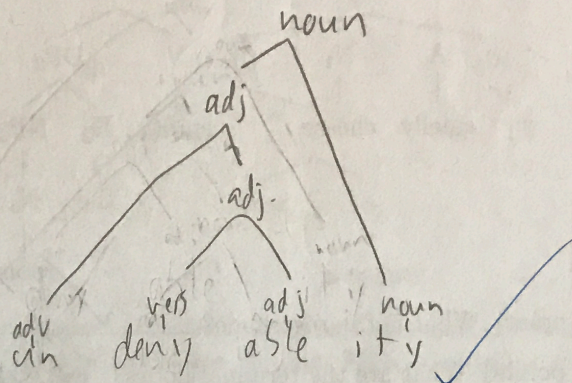 noun
adj
adj.
adv verb adj noun
un deny able ity